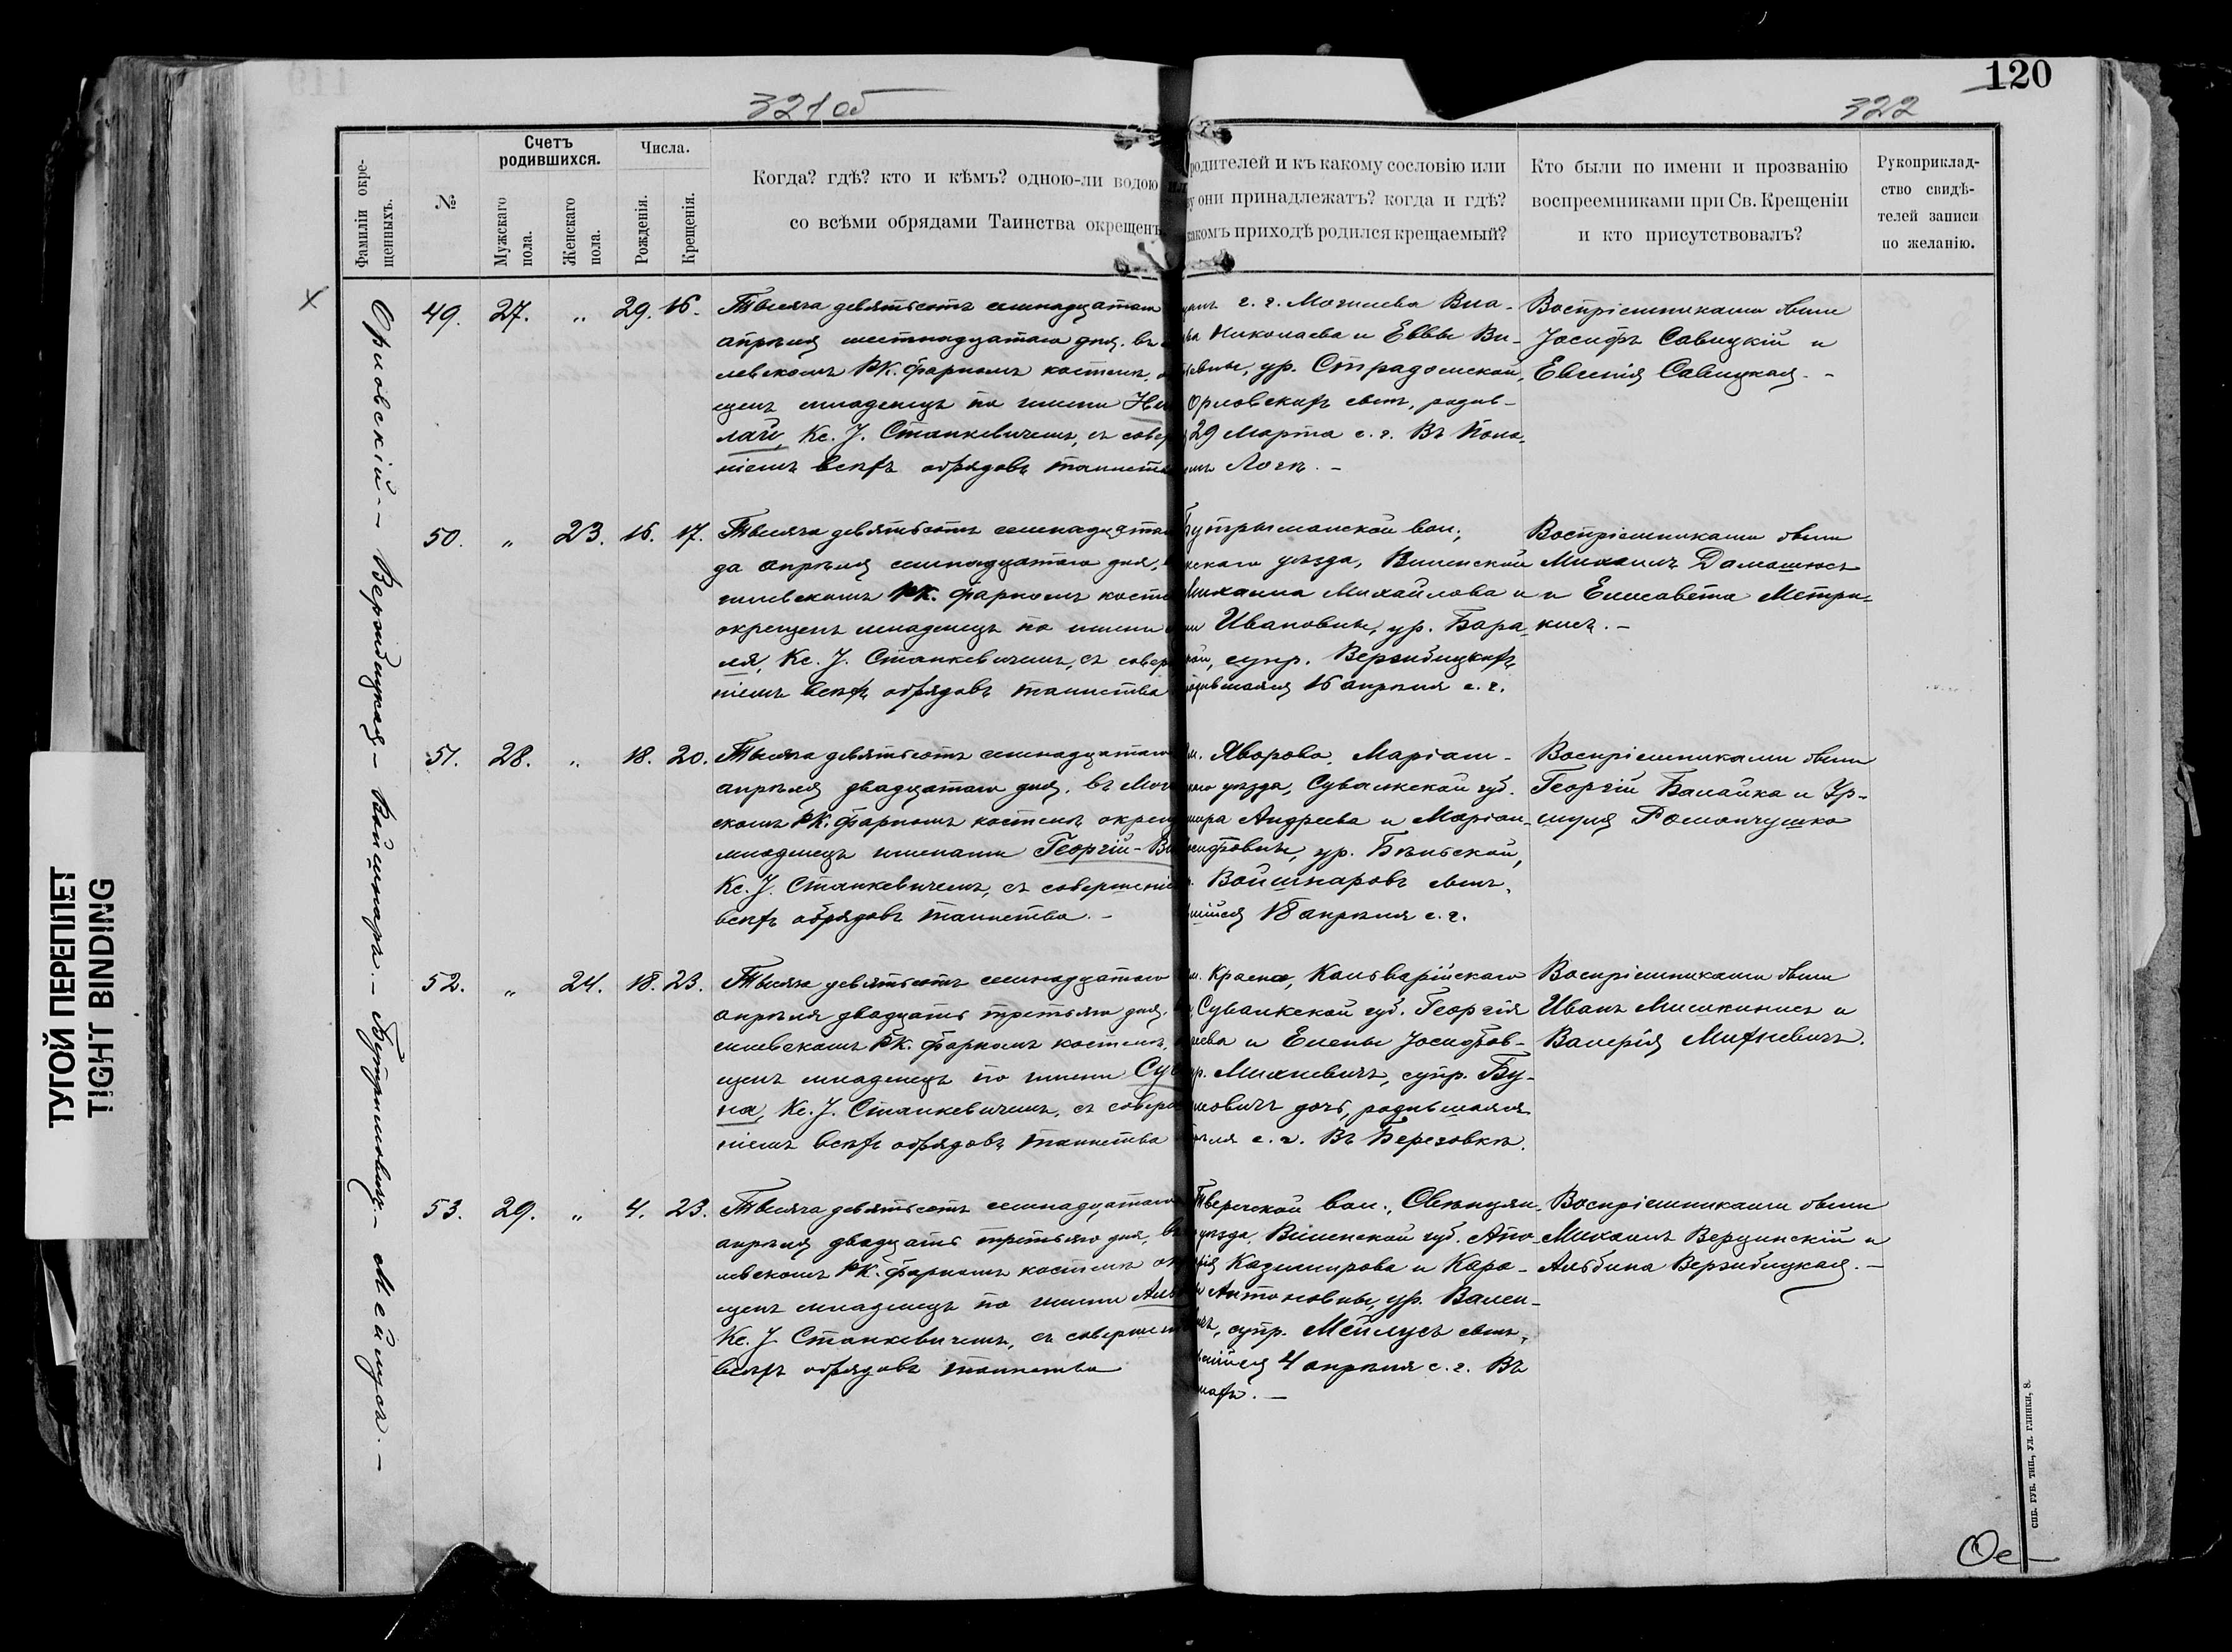 120
321 об
322
Фамиліи окре-
щенныхъ.
№
Счетъ
родившихся.
Мужскаго
пола.
Женскаго
пола.
Числа.
Рожденія.
Крещенія.
Когда? гдѣ? кто и кѣмъ? одною-ли водою или
со всѣми обрядами Таинства окрещенъ
родителей и къ какому сословію или
они принадлежатъ? когда и гдѣ?
какомъ приходѣ родился крещаемый?
Кто были по имени и прозванію
воспреемниками при Св. Крещеніи
и кто присутствовалъ?
Рукоприклад-
ство свидѣ-
телей записи
по желанію.
Орловскій — Вержбицкая — Войшнаръ. — Бутримовичъ. — Мейлусъ. —
49. 27. „ 29. 16.
Тысяча девятьсотъ семнадцатаго
апрѣля шестнадцатаго дня. въ
левскомъ Р.К. фарномъ костелѣ,
щенъ младенецъ по имени Ни
лай, Кс. J. Станкевичемъ, съ совер
ніемъ всѣхъ обрядовъ таинства
г. г. Могилева Вла-
Николаева и Еввы Ви-
ур. Страдомской,
Орловскихъ сынъ, родив-
29 Марта с. г. Въ Поло-
Логѣ. —
Воспріемниками были
Jосифъ Савицкій и
Евгенія Савицкая. —
50. „ 23. 16. 17.
Тысяча девятьсотъ семнадцата
да апрѣля семнадцатаго дня,
гилевскомъ Р.К. фарномъ косте
окрещенъ младенецъ по имени
ля, Кс. J. Станкевичемъ, съ совер
ніемъ всѣхъ обрядовъ таинства
Бутрыманской вол.,
скаго уѣзда, Виленской
Михаила Михайлова и
Ивановны, ур. Бара-
супр. Вержбицкихъ
родившаяся 16 апрѣля с. г.
Воспріемниками были
Михаилъ Дамашюсъ
и Елисавета Метри-
кисъ. —
51. 28. „ 18. 20.
Тысяча девятьсотъ семнадцатаго
апрѣля двадцатаго дня. въ Моги
скомъ Р.К. фарномъ костелѣ окрещ
младенецъ именами Георгій-Ви
Кс. J. Станкевичемъ, съ совершені
всѣхъ обрядовъ таинства. —
Яворово, Маріам-
уѣзда, Сувалкской губ.
Андреева и Маріан-
ур. Бѣльской,
Войшнаровъ сынъ,
18 апрѣля с. г.
Воспріемниками были
Георгій Балайка и Ур-
шуля Романчушко
52. „ 24. 18. 23.
Тысяча девятьсотъ семнадцатаго
апрѣля двадцать третьяго дня.
гилевскомъ Р.К. фарномъ костелѣ,
щенъ младенецъ по имени Су
на, Кс. J. Станкевичемъ, съ совер
ніемъ всѣхъ обрядовъ таинства
Красна, Кальварійскаго
Сувалкской губ. Георгія
и Елены Jосифов-
ур. Михневичъ, супр. Бу-
мовичъ дочь, родившаяся
с. г. Въ Березовкѣ.
Воспріемниками были
Иванъ Мишкинисъ и
Валерія Михневичъ.
53. 29. „ 4. 23.
Тысяча девятьсотъ семнадцатаго
апрѣля двадцать третьяго дня, въ
левскомъ Р.К. фарномъ костелѣ ок
щенъ младенецъ по имени Аль
Кс. J. Станкевичемъ, съ совершен
всѣхъ обрядовъ таинства
Тверечской вол., Свенцян-
уѣзда, Виленской губ. Апо-
Казимирова и Каро-
Антоновны, ур. Вален-
супр. Мейлусъ сынъ,
4 апрѣля с. г. Въ
Воспріемниками были
Михаилъ Вердинскій и
Альбина Вержбицкая. —
ТУГОЙ ПЕРЕПЛЕТ
TIGHT BINDING
СПБ. ГУБ. ТИП., УЛ. ГЛИНКИ, 8.